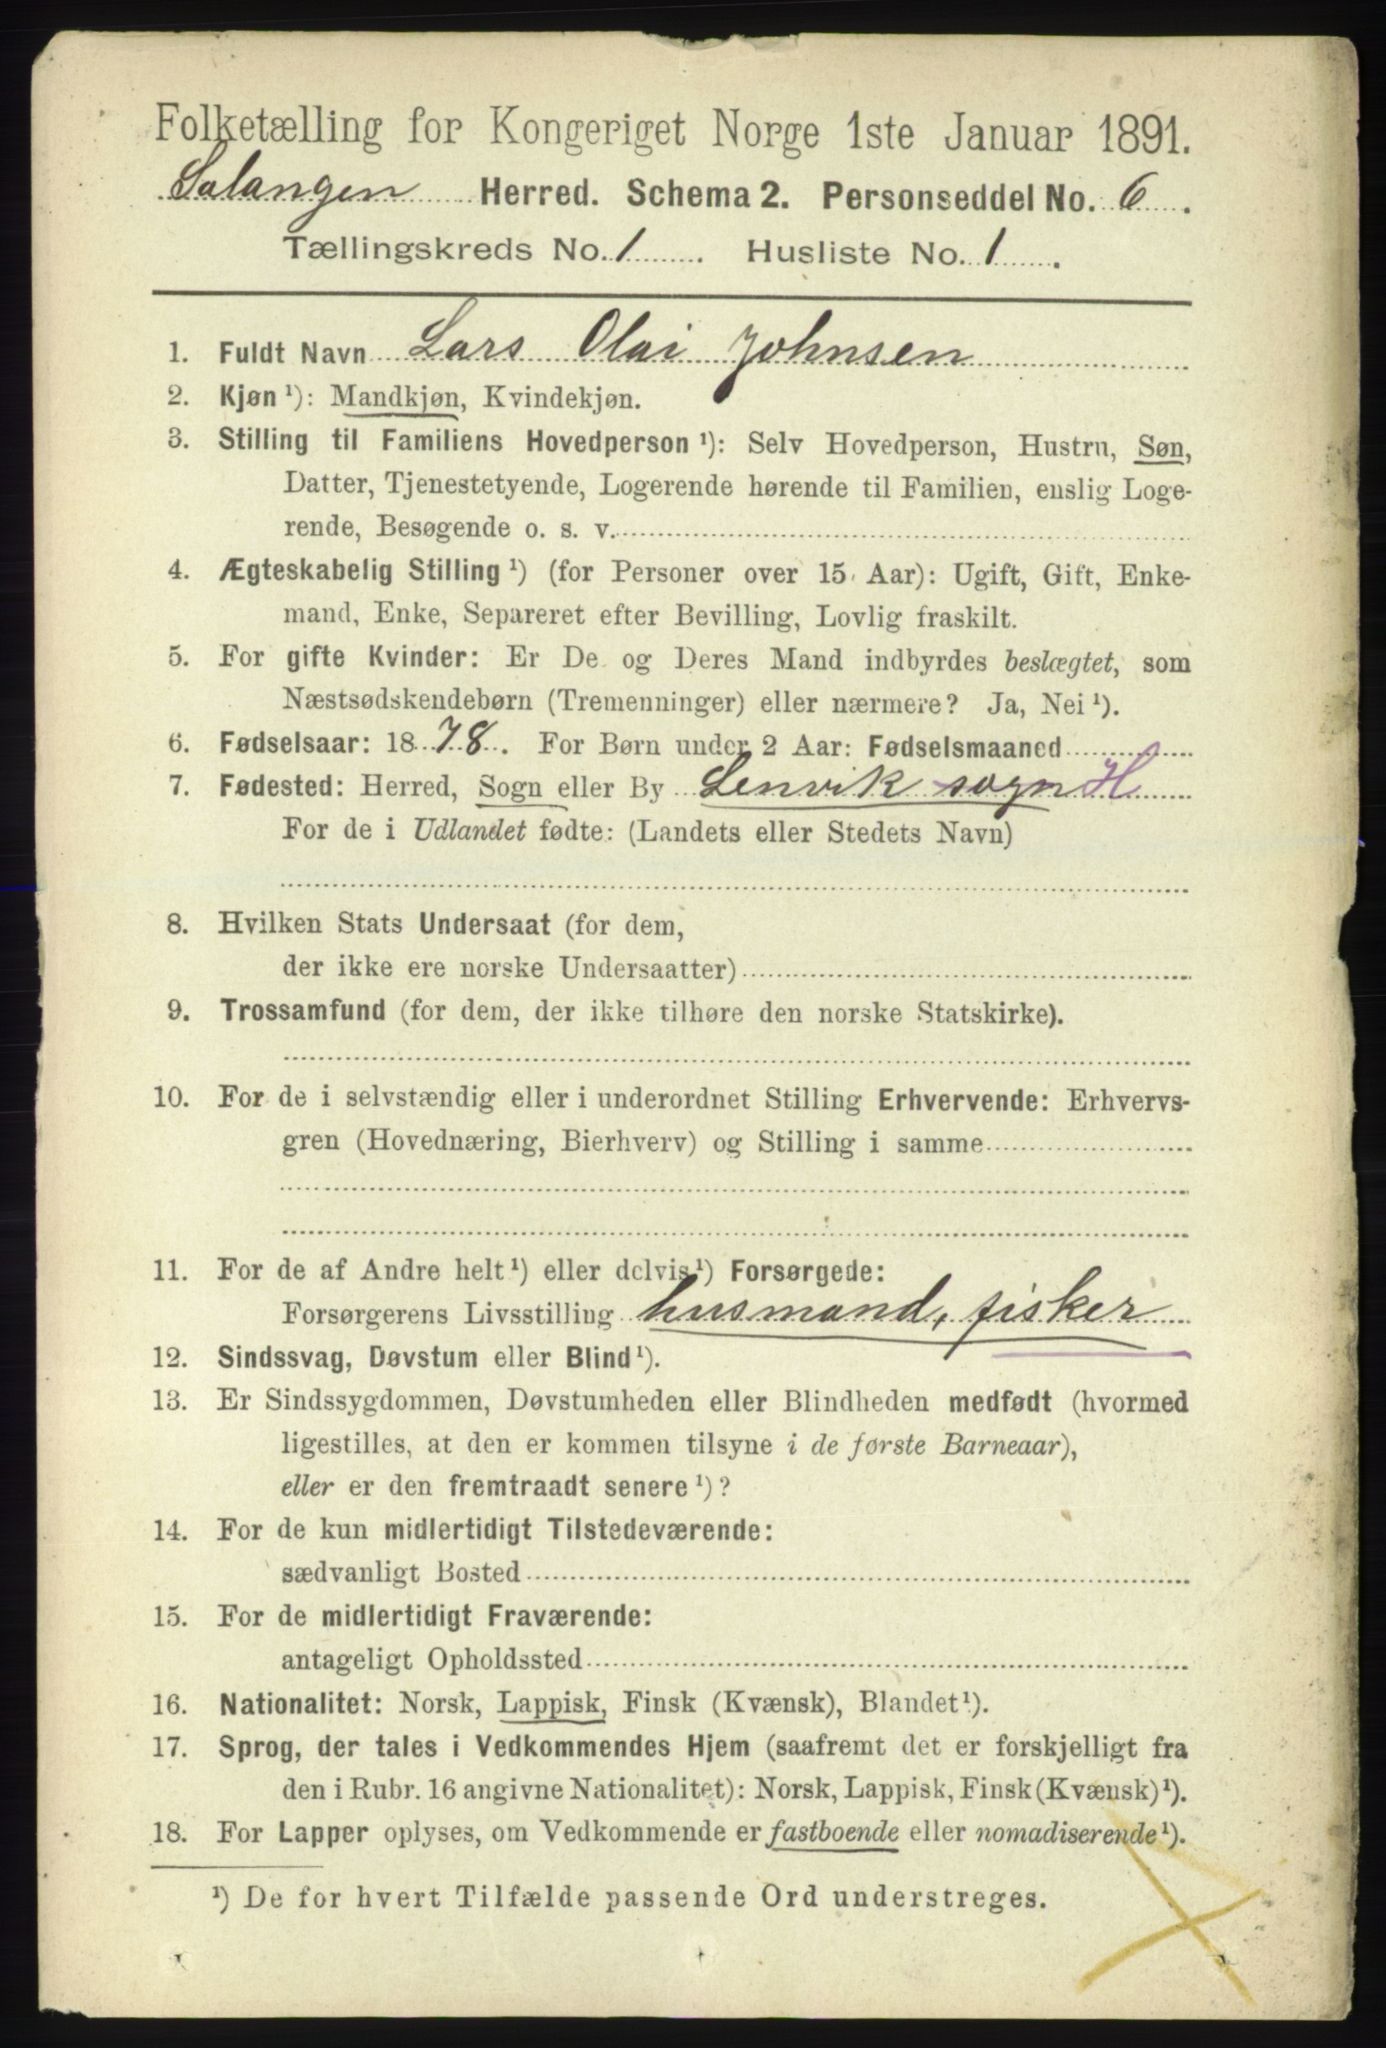 Folketælling for Kongeriget Norge 1ste Januar 1891.
Salangen Herred. Schema 2. Personseddel No. 6.
Tællingskreds No. 1. Husliste No. 1.
1. Fuldt Navn Lars Olai Johnsen
2. Kjøn ¹): Mandkjøn, Kvindekjøn.
3. Stilling til Familiens Hovedperson ¹): Selv Hovedperson, Hustru, Søn,
Datter, Tjenestetyende, Logerende hørende til Familien, enslig Loge-
rende, Besøgende o. s. v.
4. Ægteskabelig Stilling ¹) (for Personer over 15 Aar): Ugift, Gift, Enke-
mand, Enke, Separeret efter Bevilling, Lovlig fraskilt.
5. For gifte Kvinder: Er De og Deres Mand indbyrdes beslægtet, som
Næstsødskendebørn (Tremenninger) eller nærmere? Ja, Nei ¹).
6. Fødselsaar: 1878. For Børn under 2 Aar: Fødselsmaaned
7. Fødested: Herred, Sogn eller By Lenvik sogn H
For de i Udlandet fødte: (Landets eller Stedets Navn)
8. Hvilken Stats Undersaat (for dem,
der ikke ere norske Undersaatter)
9. Trossamfund (for dem, der ikke tilhøre den norske Statskirke).
10. For de i selvstændig eller i underordnet Stilling Erhvervende: Erhvervs-
gren (Hovednæring, Bierhverv) og Stilling i samme
11. For de af Andre helt ¹) eller delvis ¹) Forsørgede:
Forsørgerens Livsstilling husmand, fisker
12. Sindssvag, Døvstum eller Blind ¹).
13. Er Sindssygdommen, Døvstumheden eller Blindheden medfødt (hvormed
ligestilles, at den er kommen tilsyne i de første Barneaar),
eller er den fremtraadt senere ¹)?
14. For de kun midlertidigt Tilstedeværende:
sædvanligt Bosted
15. For de midlertidigt Fraværende:
antageligt Opholdssted
16. Nationalitet: Norsk, Lappisk, Finsk (Kvænsk), Blandet ¹).
17. Sprog, der tales i Vedkommendes Hjem (saafremt det er forskjelligt fra
den i Rubr. 16 angivne Nationalitet): Norsk, Lappisk, Finsk (Kvænsk) ¹).
18. For Lapper oplyses, om Vedkommende er fastboende eller nomadiserende ¹).
¹) De for hvert Tilfælde passende Ord understreges.